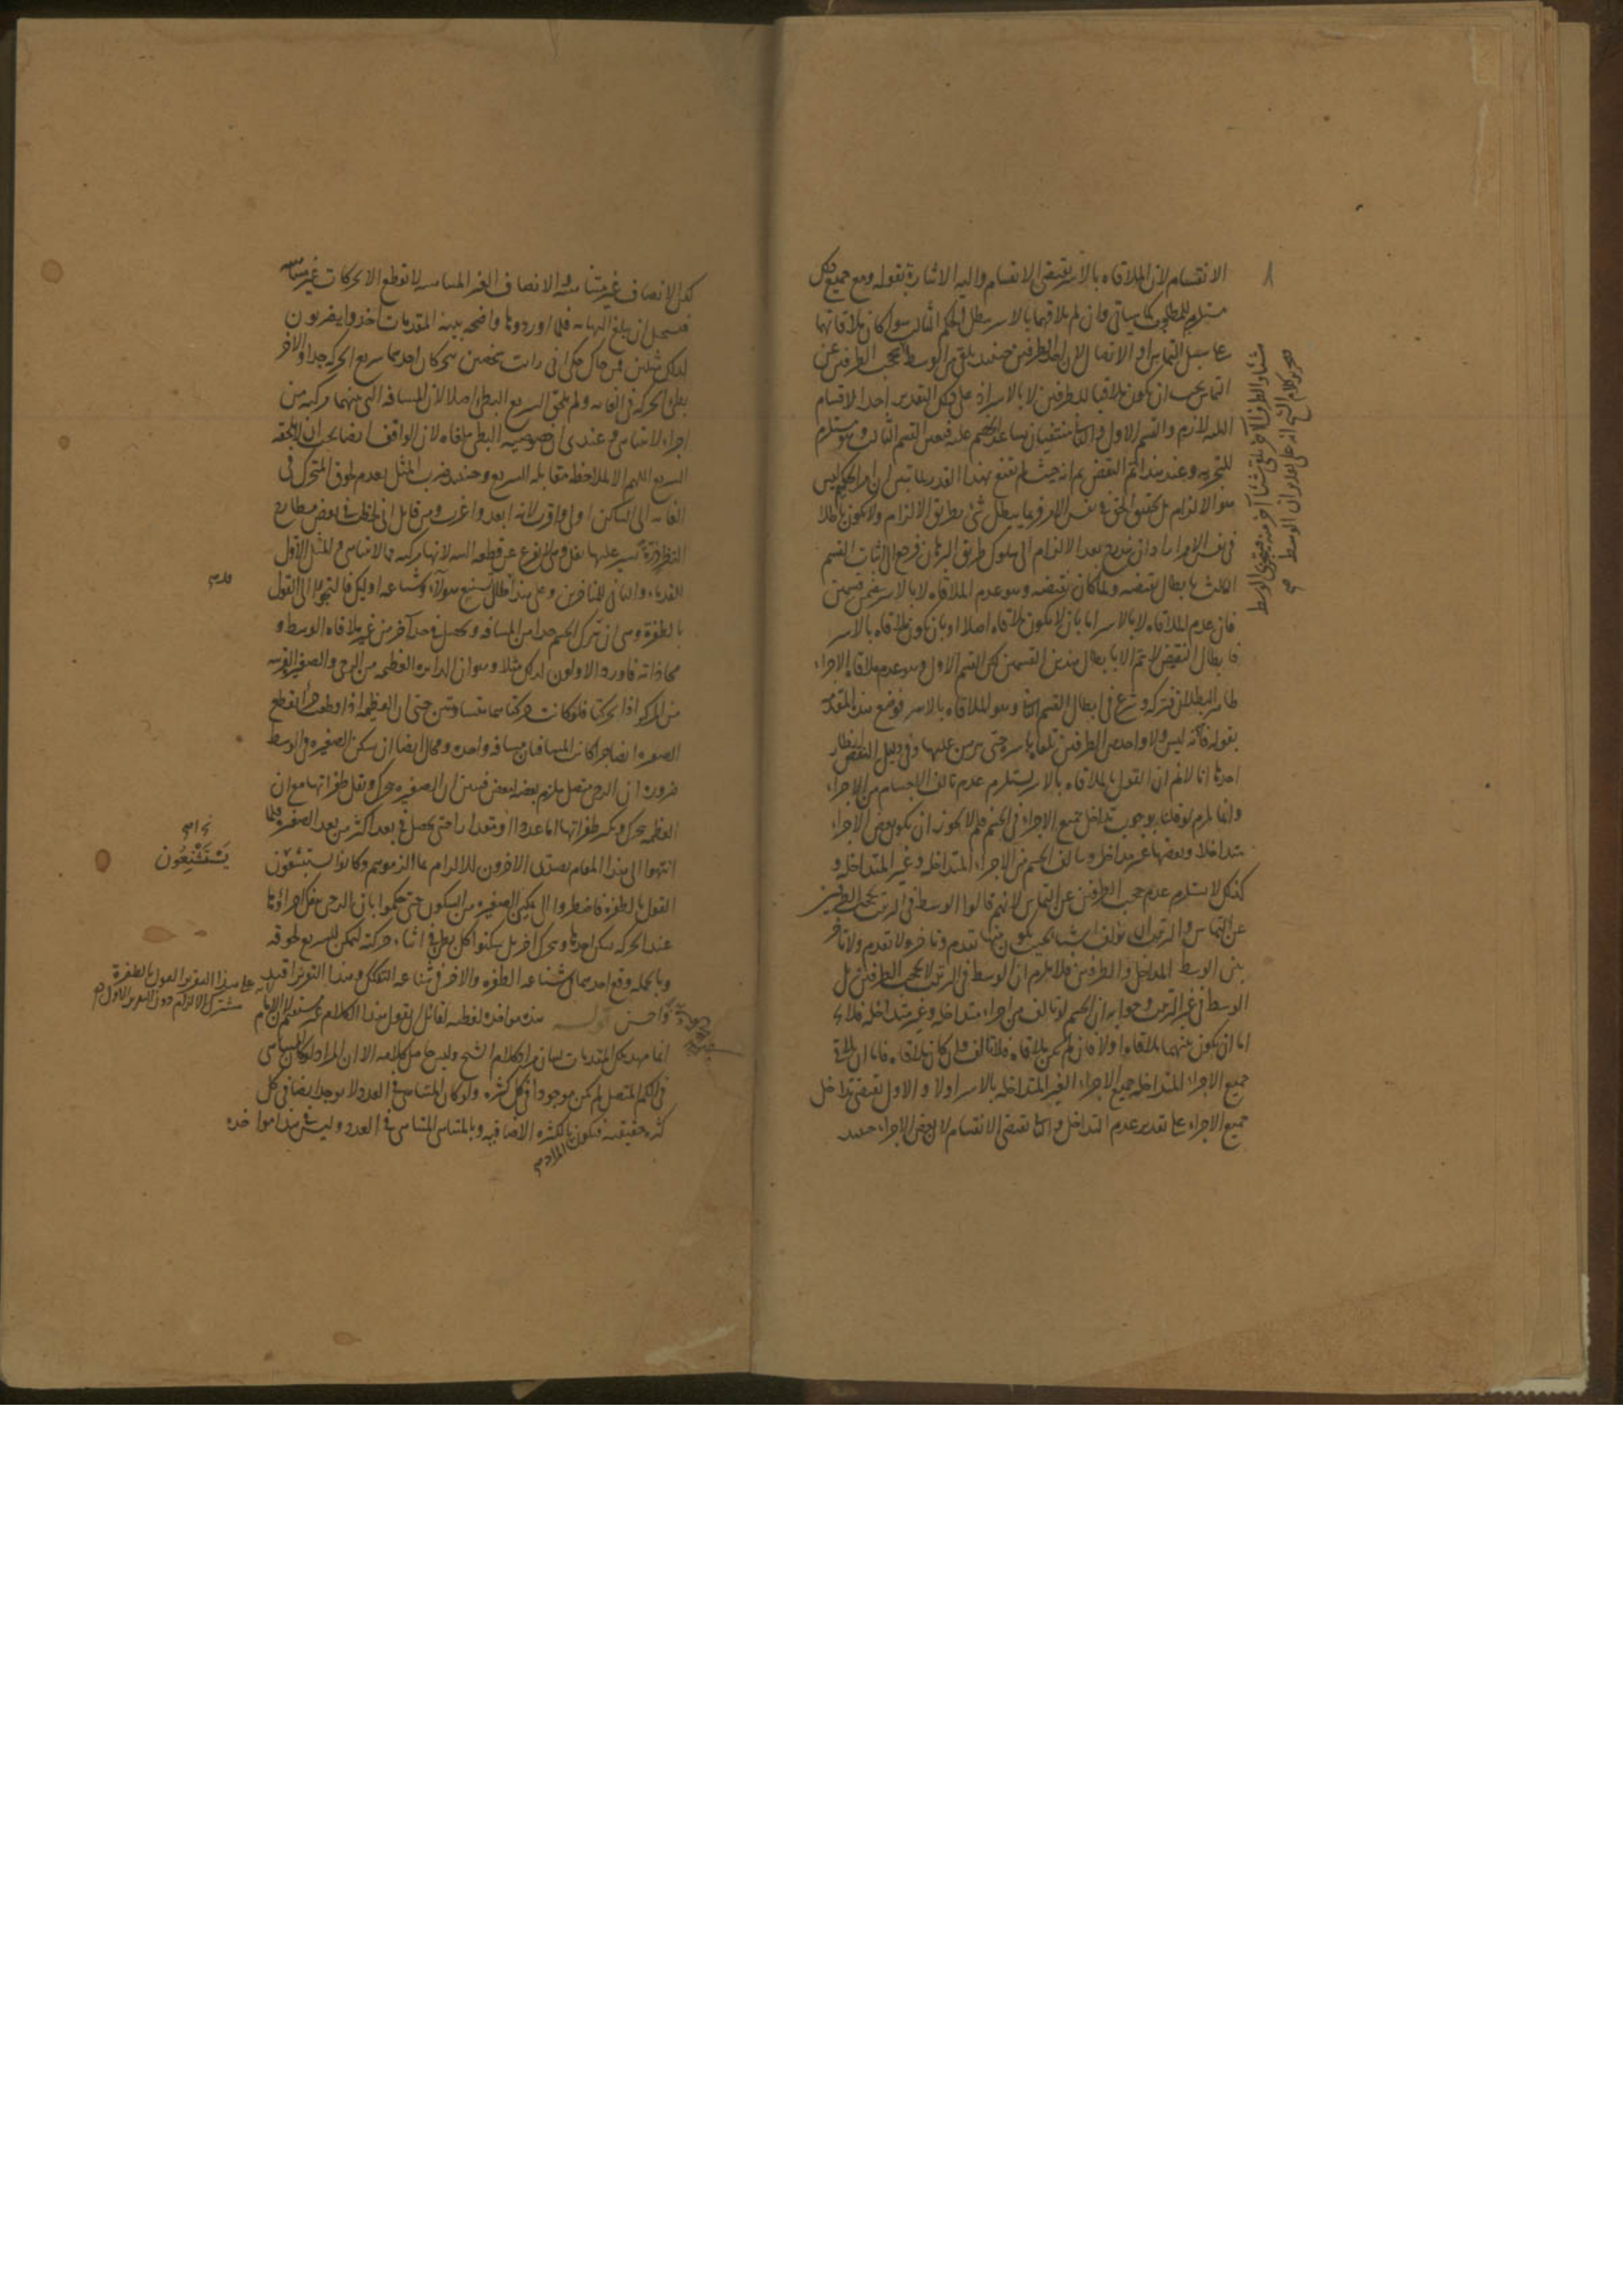 الانقسام لان الملاقاه بالاسر يقتضى الانقسام واليه الاشارة بقوله ومع جميع ذلك
مستلزم للمطلوب كما سياتى وان لم يلاقهما بالاسر بطل الحكم الثالث سواء كان ملاقاتها
على سبيل التماس او الاتصال لان احد الطرفين حينئذ يلقى من الوسط حجب الطرفين عن
التماس يجب ان يكون ملاقيا للطرفين لا بالاسر اذ على ذلك التقدير احد الاقسام
الثلثة لازم والقسم الاول والثانى منتفيان بمساعدة الخصم عليه فتعين القسم الثالث وهو مستلزم
للتجزيه وعند هذا تم النقض ثم انه حيث لم يقنع بهذا القدر
هو الالزام بل تحقيق الحق فى نفس الامر وربما يبطل شئ بطريق الالزام ولا يكون باطلا
فى نفس الامر اراد ان يتدرج بعد الالزام الى سلوك طريق البرهان فرجع الى اثبات القسم
الثالث بابطال نقيضه ولما كان نقيضه وهو عدم الملاقاه لا بالاسر يتضمن قسمين
فان عدم الملاقاه لا بالاسر اما بان لا يكون ملاقاه اصلا او بان يكون ملاقاه بالاسر
فابطال النقيض لا يتم الا بابطال هذين القسمين لكن القسم الاول وهو عدم ملاقاه الاجزاء
ظاهر البطلان فتركه وشرع فى ابطال القسم الثانى وهو الملاقاه بالاسر فوضع هذه المقدمة
بقوله فانه ليس ولا واحد من الطرفين يلقاه باسره حتى يبرهن عليها وفى دليل النقض انظار
احدها انا لا نم ان القول بالملاقاه بالاسر يستلزم عدم تالف الاجسام من الاجزاء
وانما يلزم لو قلنا بوجوب تداخل جميع الاجزاء فى الجسم فلم لا يجوز ان يكون بعض الاجزاء
متداخلا وبعضها غير متداخل وتالف الجسم من الاجزاء المتداخلة وغير المتداخلة و
كذلك لا يستلزم عدم حجب الطرفين عن التماس لانهم قالوا الوسط فى الترتيب يحجب الطرفين
عن التماس والترتيب ان يؤلف اشياء بحيث يكون بينها تقدم وتاخر ولا تقدم ولا تاخر
بين الوسط المداخل والطرفين فلا يلزم ان الوسط فى الترتيب لا يحجب الطرفين بل
الوسط فى غير الترتيب وجوابه ان الجسم لو تالف من اجزاء متداخله وغير متداخله فلا يخ
اما ان يكون بينهما ملاقاه او لا فان لم يكن ملاقاه فلا تالف وان كان ملاقاه فاما ان يلاقى
جميع الاجزاء المتداخله جميع الاجزاء الغير المتداخله بالاسر او لا والاول يقتضى تداخل
جميع الاجزاء على تقدير عدم التداخل والثانى يقتضى الانقسام لان بعض الاجزاء حينئذ
شيئا والطرف الآخر يلقى شيئا آخر منه فيتجزى الوسط
كلام الشيخ انه على تقدير ان الوسط
لكن الانصاف غير متناهية والانصاف الغير المتناهيه لا تقطع الا بحركات غير متناهيه
فيستحيل ان يبلغ النهايه فلما اوردوها واضحه بينه المقدمات اخذوا يضربون
لذلك مثلين فمن حاك حكى انى رايت شخصين يتحركان احدهما سريع الحركه جدا والاخر
بطئ الحركه فى الغايه ولم يلحق السريع البطئ اصلا لان المسافه التى بينهما مركبه من
اجزاء لا تتناهى وعندى ان خصوصيه البطئ ملغاه لان الواقف ايضا يجب ان لا يلحقه
السريع اللهم الا لملاحظه مقابله السريع وحينئذ ضرب المثل بعدم لحوق المتحرك فى
الغايه الى الساكن اولى واوقع لانه ابعد واغرب ومن قايل انى لاحظت فى بعض مطارح
النظر ذرة تسير عليها نعل ولا تفرغ عن قطعها البته لانها مركبه مما لا يتناهى والمثل الاول
للقدماء والثانى للمتاخرين وعلى هذا طال تشنيع هؤلاء وشناعه اوليك فالتجؤا الى القول
بالطفرة وهى ان يترك الجسم حدا من المسافه ويحصل فى حد آخر من غير ملاقاه الوسط و
محاذاته فاورد الاولون لذلك مثلا وهو ان الدايره العظيمه من الرحى والصغيره القريبه
من المركز اذا تحركتا فلو كانت حركتاهما متساويتين حتى ان العظيمه اذا قطعت جزءا تقطع
الصغيره ايضا جزءا كانت المسافتان مسافه واحده ومحال ايضا ان تسكن الصغيره فى الوسط
ضروره ان الرحى متصل ملزم بعضه ببعض فتبين ان الصغيره تتحرك وتقل طفراتها مع ان
العظيمه تتحرك وتكثر طفراتها اما عددا او مقدارا حتى يحصل فى بعد اكثر من بعد الصغيره فلما
انتهوا الى هذا المقام تصدى الاخرون للالزام على الزموهم وكانوا يستشنعون
القول بالطفرة فاضطروا الى تمكين الصغيره من السكون حتى حكموا بان الرحى يتفكك اجزاؤها
عند الحركه فيسكن احدها ويتحرك اخر بل يسكنوا كل بطئ فى اثناء حركته ليمكن للسريع لحوقه
وبالجمله وقع احدهما فى شناعه الطفره والاخر فى شناعه التفكك وهذا التقرير اقيد
واحسن قوله هذه مؤاخذه لفظيه لقائل ان يقول هذا الكلام غير مستقيم لان الامام
انما مهد تلك المقدمات لبيان مراد كلام الشيخ وليس حاصل كلامه الا ان المراد لو كان المتناهى
فى الكم المتصل لم يكن موجودا فى كل كثره ولو كان المتناهى فى العدد لا يوجد ايضا فى كل
كثره حقيقيه فيكون بالكثره الاضافيه وبالمتناهى المتناهى فى العدد وليس فى هذا مؤاخذه
المراد
يَسْتَشْنِعُون
على هذا التقرير القول بالطفرة
مشترك الالزام دون التقرير الاول